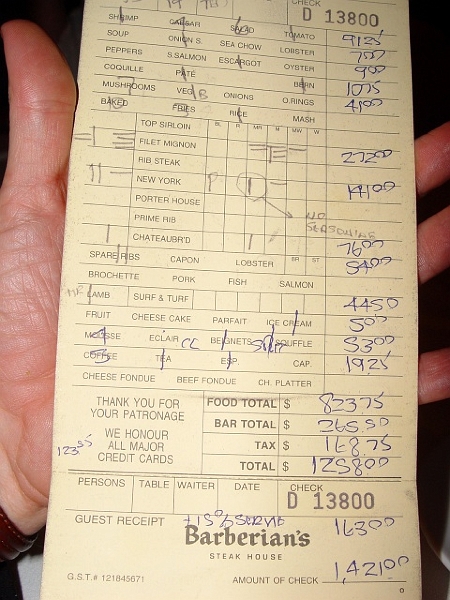 CHECK
D 13800
SHRIMP CAESAR SALAD TOMATO 91.25
SOUP ONION S. SEA CHOW LOBSTER 7.00
PEPPERS S.SALMON ESCARGOT OYSTER 9.00
COQUILLE PATÉ BERN 10.75
MUSHROOMS VEG B ONIONS O.RINGS 41.00
BAKED FRIES RICE MASH
BL R MR M MW W
TOP SIRLOIN
FILET MIGNON 272.00
RIB STEAK
NEW YORK P 141.00
PORTER HOUSE NO SEASONING
PRIME RIB
CHATEAUBR'D 76.00
SPARE RIBS CAPON LOBSTER BR ST 54.00
BROCHETTE PORK FISH SALMON
MR LAMB SURF & TURF 44.50
FRUIT CHEESE CAKE PARFAIT ICE CREAM 5.00
MOUSSE ECLAIR CC BEIGNETS SOUFFLE 53.00
COFFEE TEA ESP. CAP. 19.25
CHEESE FONDUE BEEF FONDUE CH. PLATTER
THANK YOU FOR YOUR PATRONAGE
WE HONOUR ALL MAJOR CREDIT CARDS
123.55
FOOD TOTAL $ 823.75
BAR TOTAL $ 265.50
TAX $ 168.75
TOTAL $ 1258.00
PERSONS TABLE WAITER DATE CHECK
D 13800
GUEST RECEIPT +15% SERVICE 163.00
Barberian's
STEAK HOUSE
G.S.T.# 121845671 AMOUNT OF CHECK 1,421.00